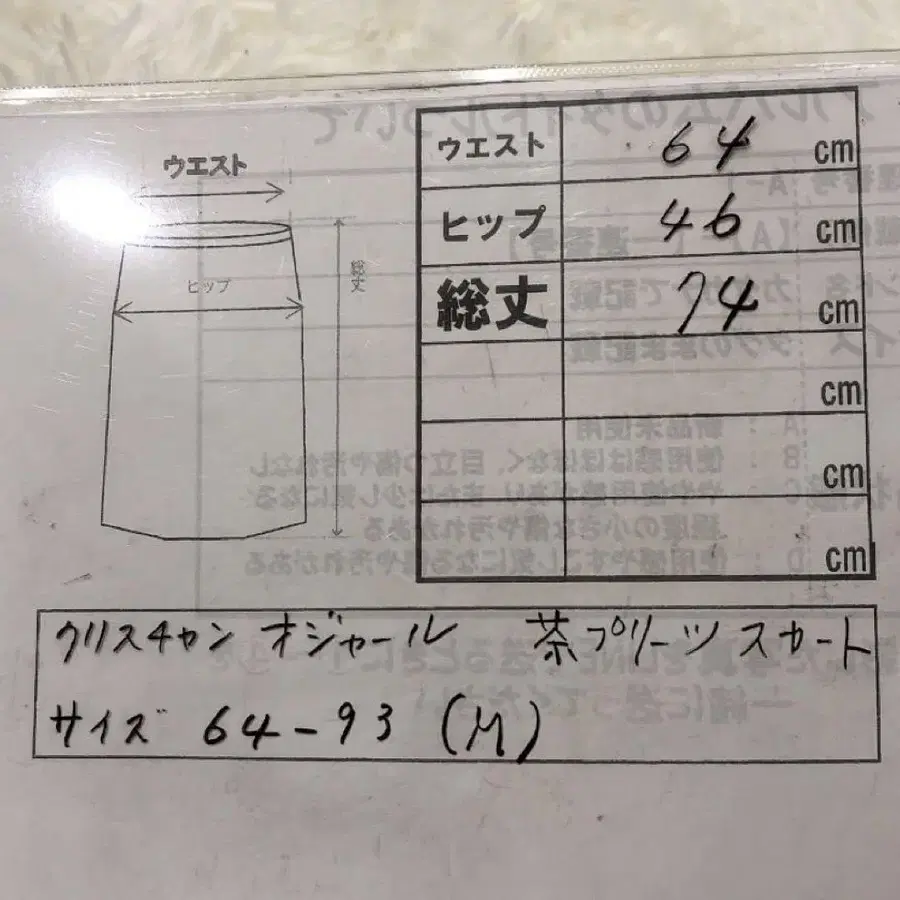 ウエスト
ヒップ
総丈
ウエスト 64 cm
ヒップ 46 cm
総丈 74 cm
cm
cm
cm
クリスチャン オジャール 茶プリーツ スカート
サイズ 64-93 (M)